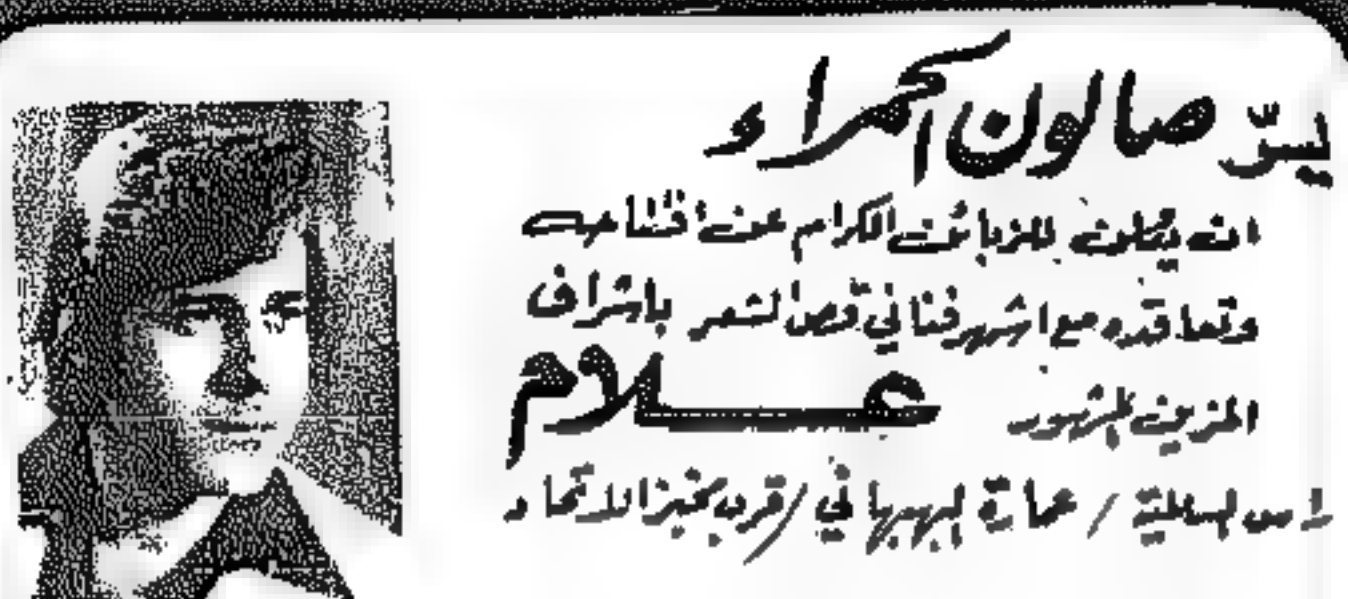 يسرّ صالون الحمراء
ان يعلن للزبائن الكرام عن افتتاحه
وتعاقده مع اشهر فناني قص الشعر باشراف
المزين المشهور علام
راس السالمية / عمارة البهبهاني / قرب مخبز الاتحاد